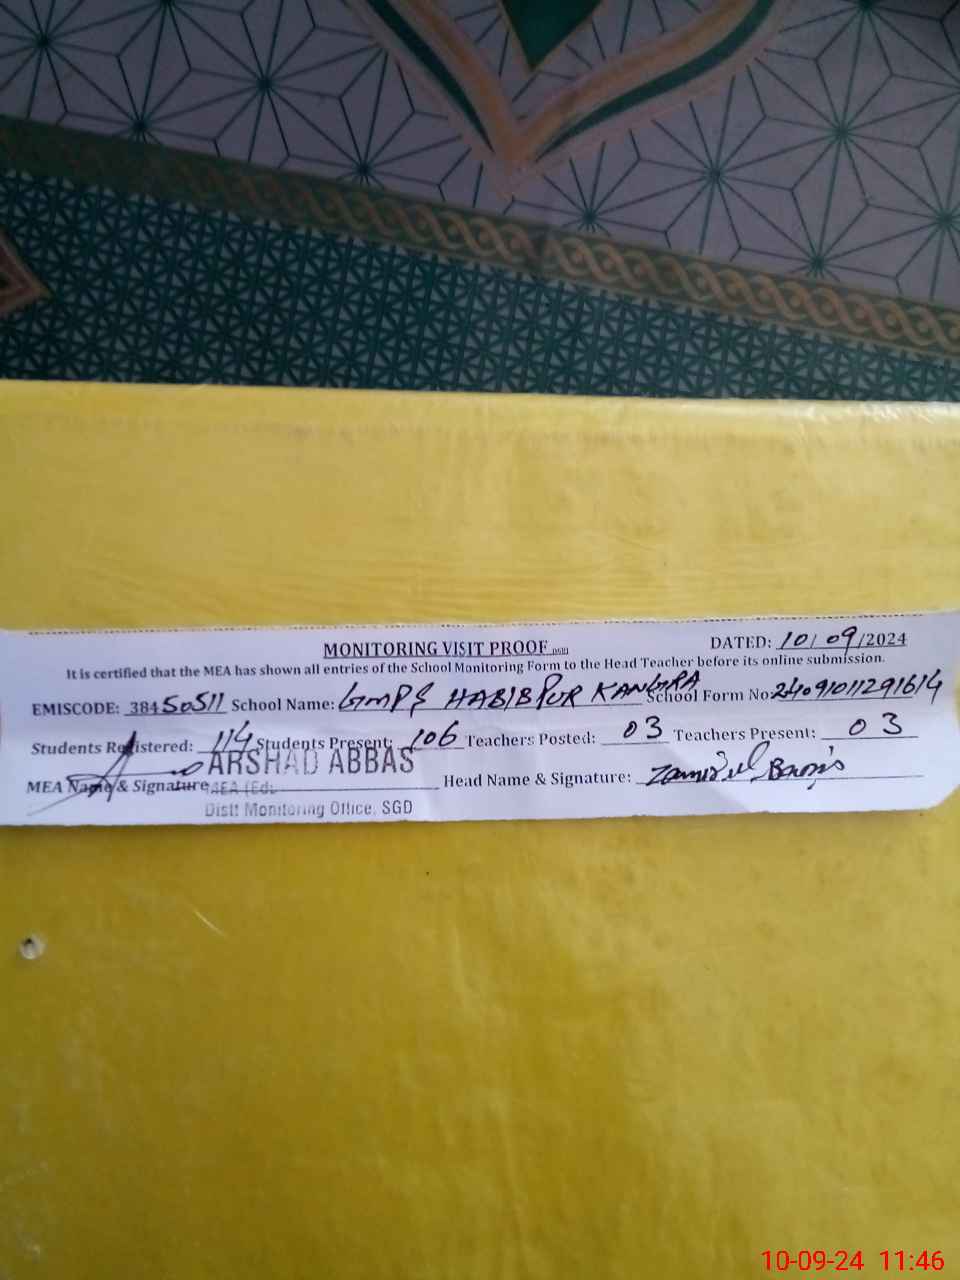 MONITORING VISIT PROOF DATED: 10/09/2024
It is certified that the MEA has shown all entries of the School Monitoring Form to the Head Teacher before its online submission.
EMISCODE: 38450511 School Name: GMPS HABIBPUR KANGRA School Form No: 24091011291614
Students Registered: 114 Students Present: 106 Teachers Posted: 03 Teachers Present: 03
ARSHAD ABBAS
MEA Name & Signature MEA (Edu Head Name & Signature:
Distt Monitoring Office, SGD
10-09-24 11:46